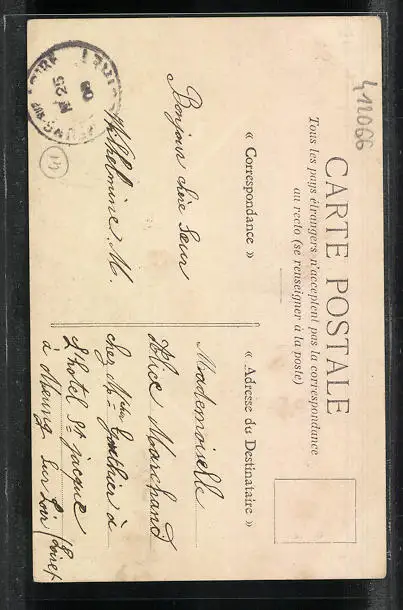 412066
CARTE POSTALE
Tous les pays étrangers n'acceptent pas la correspondance
au recto (se renseigner à la poste)
« Correspondance »
Bonjour chère Sœur
Wilhelmine. M.
« Adresse du Destinataire »
Mademoiselle
Alice Marchand
chez Mme Gonthier à
l'hotel St jacque
à Meung Sur Loir (Loiret
25
08